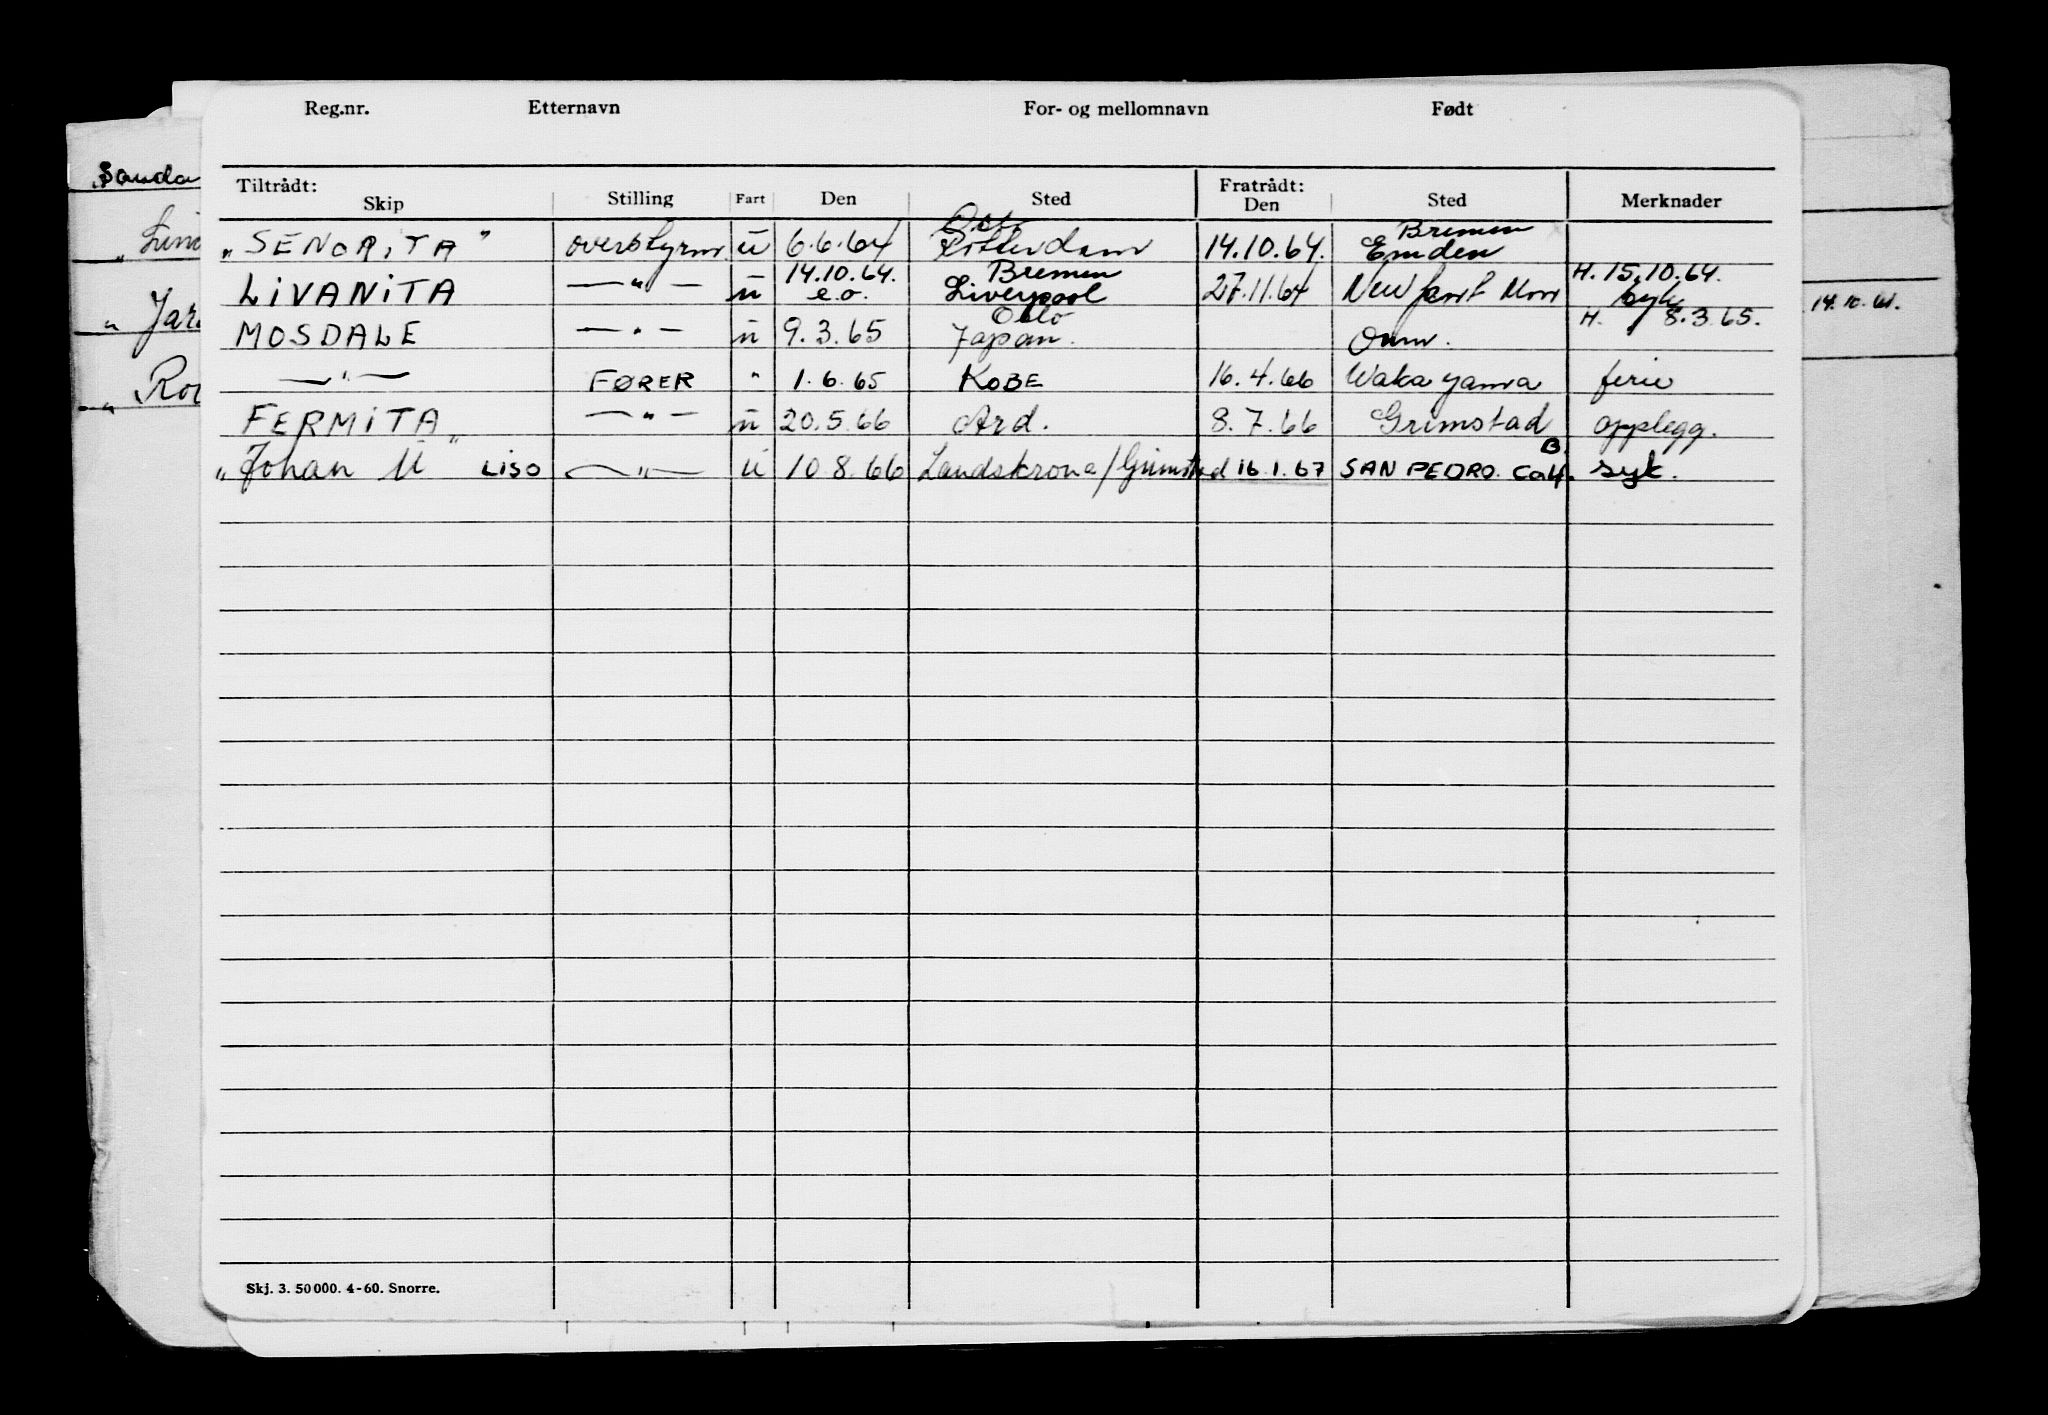 Reg.nr. Etternavn For- og mellomnavn Født
Tiltrådt: Fratrådt:
Skip Stilling Fart Den Sted Den Sted Merknader
„SENORITA" overstyrm ü 6.6.64 Rotterdam 14.10.64. Bremen Emden
LIVANITA —"— ü 14.10.64. e.o. Bremen Liverpool 27.11.64 H. 15.10.64. syk
MOSDALE —"— ü 9.3.65 Oslo Japan. Omm. H. 8.3.65.
—"— FØRER " 1.6.65 KOBE 16.4.66 Wakayama ferie
FERMITA —"— ü 20.5.66 Ard. 8.7.66 Grimstad opplegg.
"Johan U" LISO —"— ü 10.8.66 Landskrona/Grimstad 16.1.67 SAN PEDRO. Calf. B. syk.
Skj. 3. 50000. 4-60. Snorre.
Sauda
14.10.61.